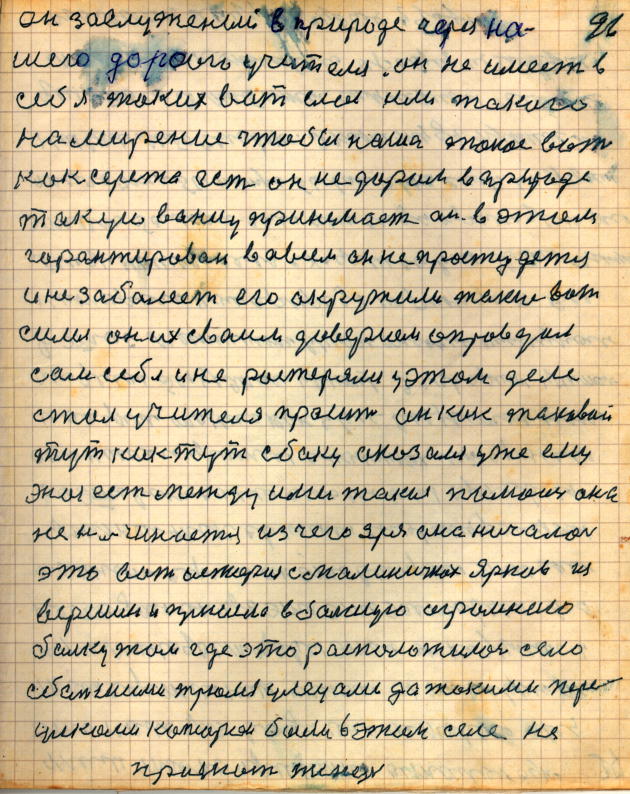 он заслужений в природе через на- 96
шего дорогого учителя. он не имеет в
себя таких вот сил или такого
намирение чтобы наша такое вот
как сережа ест он не даром в природе
такую ванну принемает он в этом
гарантирован вовсем он не простудется
и не заболеет его окружили такие вот
силы он их сваим доверием оправдал
сам себя и не растерялся у этом деле
стал учителя просит он как таковай
тут как тут сбоку оказался уже ему
значет ест между ими такая помощ она
не начинается из чего зря она началас
это вот с маленичких ярков из
вершин и пришла в балшую огромного
балку там где это расположилос село
сваими трюмя улецами да такими пере-
улками каторыи были в этом селе не